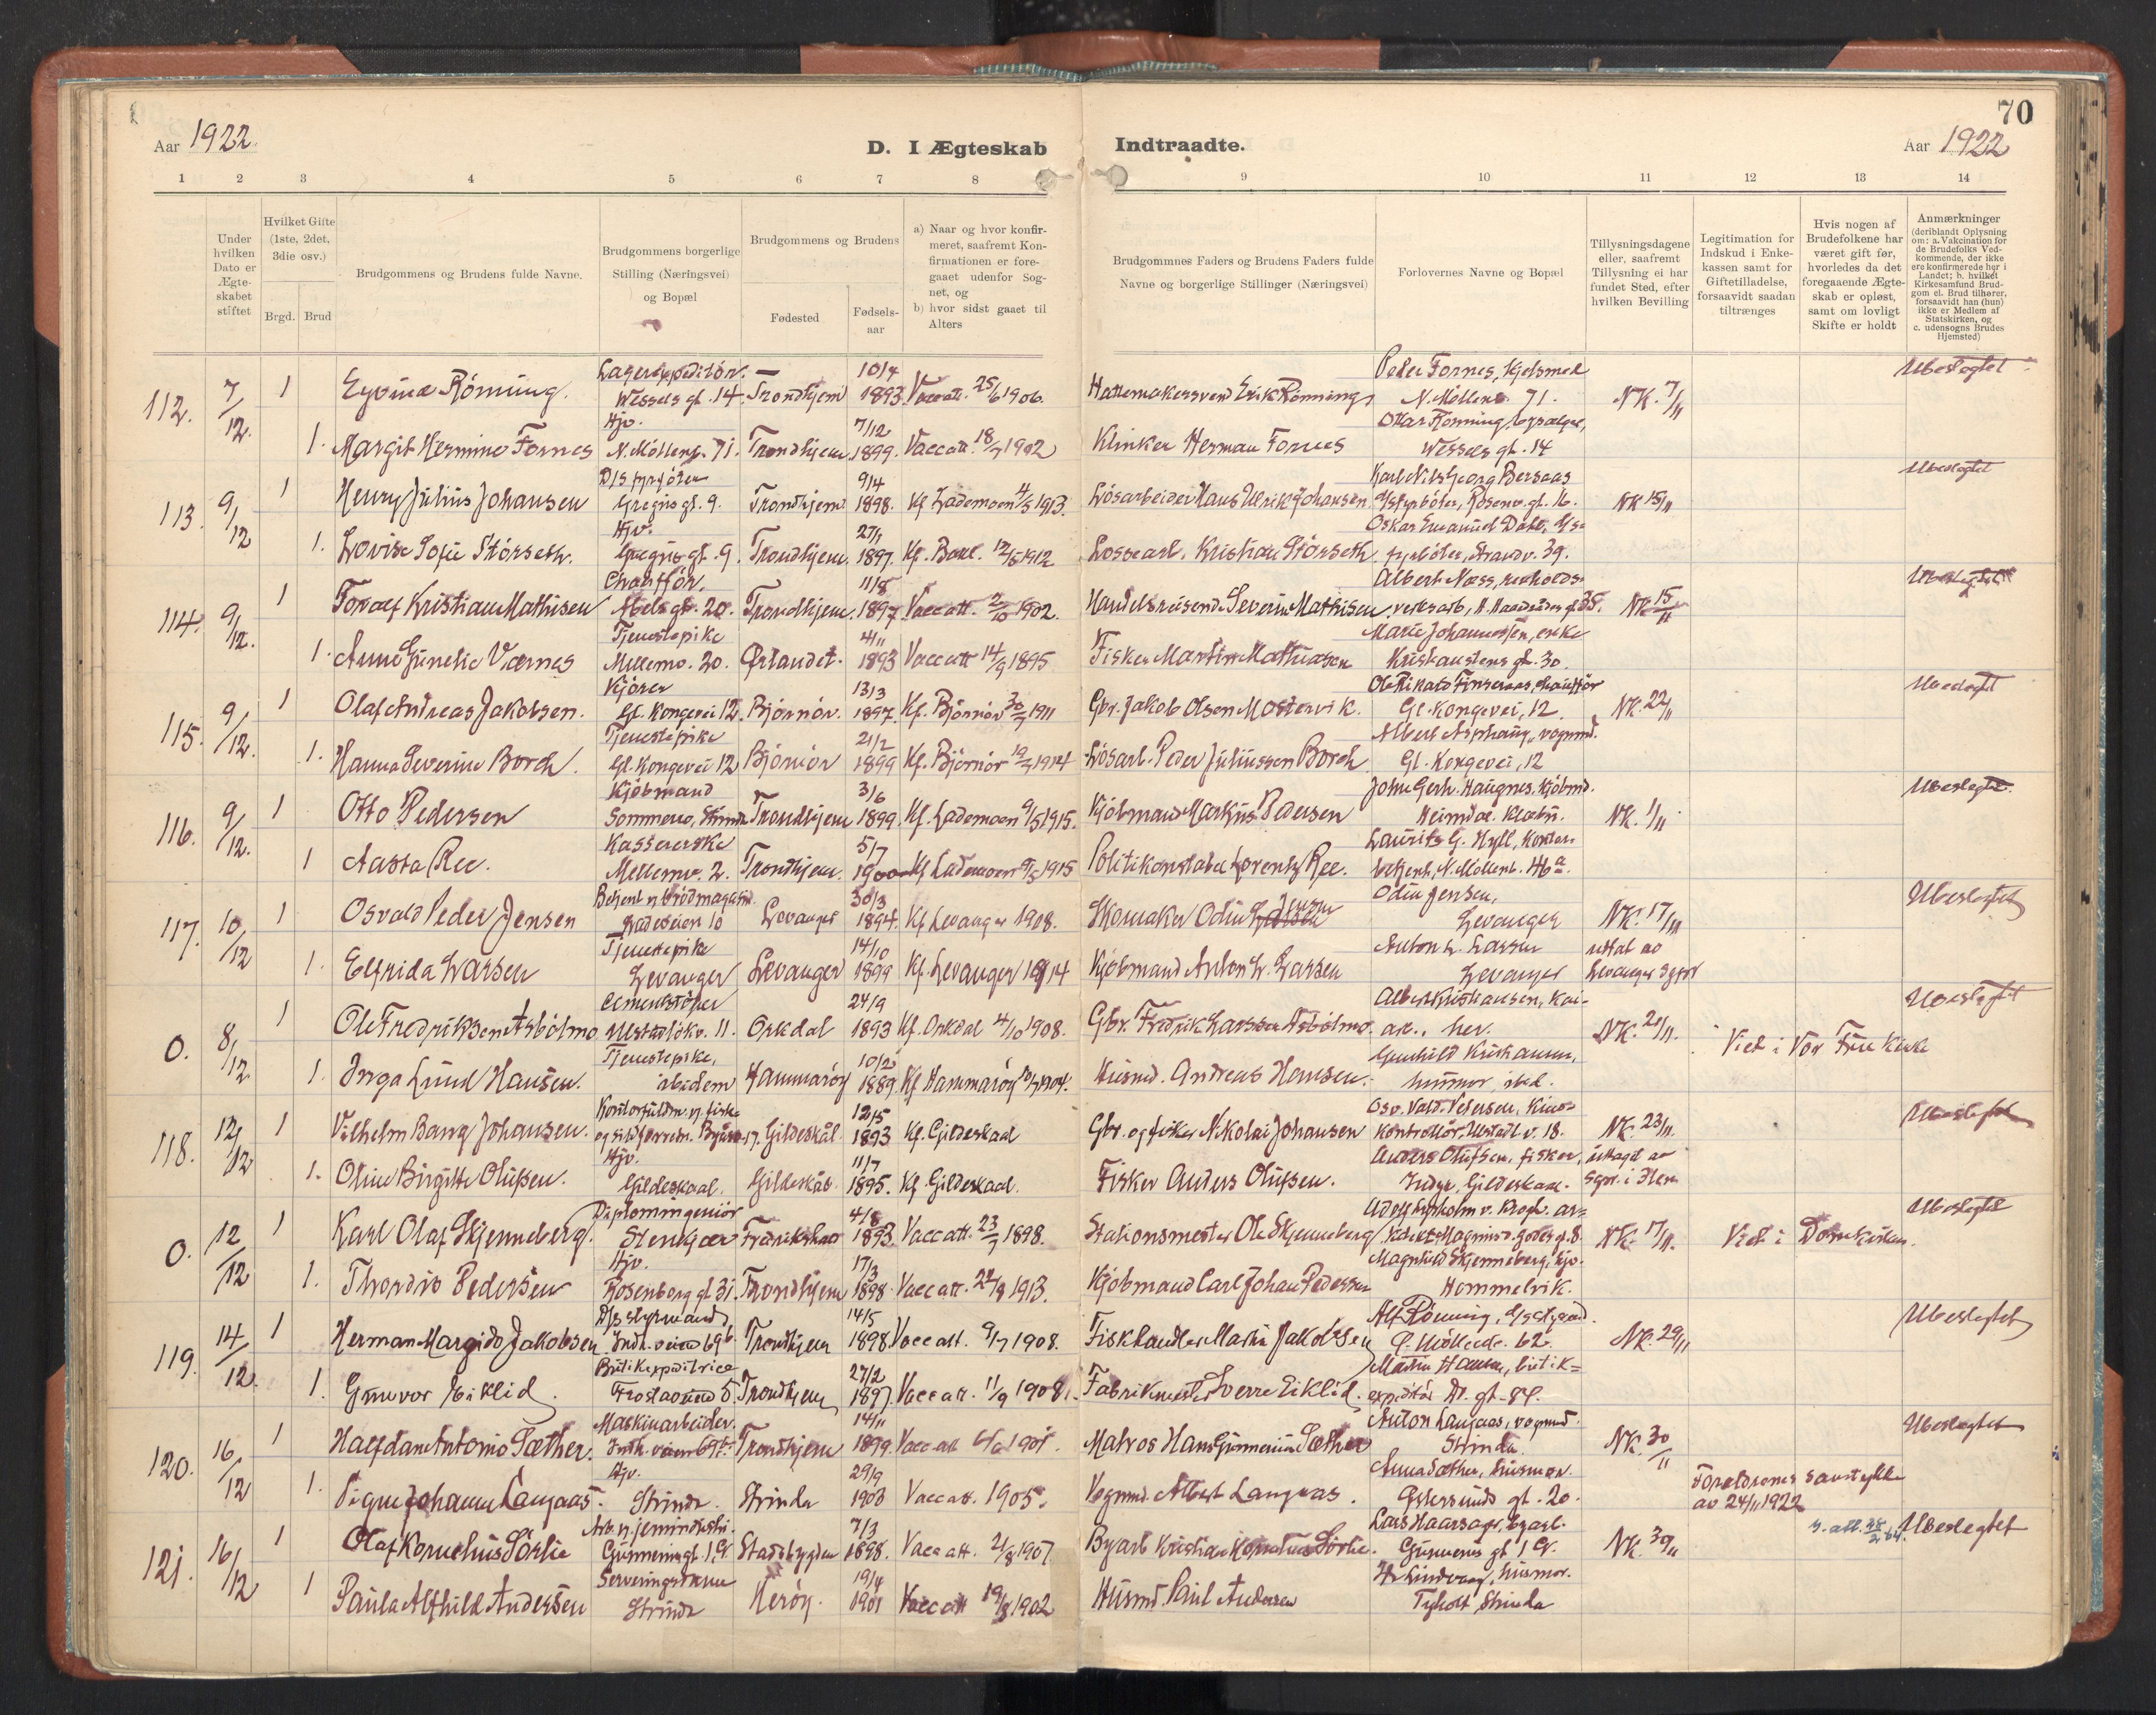 70
Aar 1922.
D. I Ægteskab Indtraadte.
Aar 1922
1 2 3 4 5 6 7 8 9 10 11 12 13 14
Under hvilken Dato er Ægteskabet stiftet
Hvilket Gifte (1ste, 2det, 3die osv.)
Brgd. Brud
Brudgommens og Brudens fulde Navne.
Brudgommens borgerlige Stilling (Næringsvei) og Bopæl
Brudgommens og Brudens
Fødested
Fødsels-aar
a) Naar og hvor konfirmeret, saafremt Konfirmationen er foregaaet udenfor Sognet, og
b) hvor sidst gaaet til Alters
Brudgommnes Faders og Brudens Faders fulde Navne og borgerlige Stillinger (Næringsvei)
Forlovernes Navne og Bopæl
Tillysningsdagene eller, saafremt Tillysning ei har fundet Sted, efter hvilken Bevilling
Legitimation for Indskud i Enkekassen samt for Giftetilladelse, forsaavidt saadan tiltrænges
Hvis nogen af Brudefolkene har været gift før, hvorledes da det foregaaende Ægteskab er opløst, samt om lovligt Skifte er holdt
Anmærkninger (deriblandt Oplysning om: a. Vakcination for de Brudefolks Vedkommende, der ikke ere konfirmerede her i Landet; b. hvilket Kirkesamfund Brudgom el. Brud tilhører, forsaavidt han (hun) ikke er Medlem af Statskirken, og c. udensogns Brudes Hjemsted)
112. 7/12. 1 Eyvind Rönning. Lagerexpeditör. Wessels gt. 14. Trondhjem 10/4 1893 Vaccatt. 25/6 1906. Hattemakersvend Erik Rönning Peder Fornes, Kjelsmed N. Möllenb. 71. NK. 7/11 Ubeslegtet
1. Margit Hermine Fornes Hjv. N. Möllenb. 71. Trondhjem 7/12 1899. Vaccatt. 18/7 1902 Klinker Herman Fornes Ottar Rönning, Wessels gt. 14
113. 9/12 1 Henry Julius Johansen D/S fyrböter Gregus gt. 9. Trondhjem 9/4 1898. Kf. Lademoen 4/5 1913. Lösarbeider Hans Ulrik Johansen Karl Nils Georg Bersaas D/S fyrböter, Rosenb. gt. 16. NK 15/11 Ubeslegtet
1. Lovise Sofie Störseth. Hjv. Gregus gt. 9. Trondhjem. 27/1 1897. Kf. Bakl. 12/5 1912 Lossearb. Kristian Störseth Oskar Emanuel Dahl, D/S fyrböter, Strandv. 39.
114. 9/12. 1 Toralf Kristian Mathisen Chaufför. Abels gt. 20. Trondhjem. 11/8 1897 Vaccatt. 2/10 1902. Handelsreisende Severin Mathisen Albert Næss, renholdsverksarb, 35. NK 15/11 Ubeslegtet
1. Anne Gunelie Værnes Tjenestepike Mellemv. 20. Ørlandet. 4/11 1893 Vaccatt 14/9 1895 Fisker Martin Mathiasen Marie Johannesen, enke Kristianstens gt. 30.
115. 9/12. 1 Olaf Andreas Jakobsen. Kjörer Gl. Kongevei 12. Björnör. 13/3 1897. Kf. Björnör 30/7 1911 Gbr. Jakob Olsen Mostervik. Ole Rikard Finseraas, chaufför Gl. Kongevei, 12. NK. 22/11 Ubeslegtet
1. Hanna Severine Borch. Tjenestepike Gl. Kongevei 12 Björnör 21/2 1899 Kf. Björnör 19/7 1914 Lösarb. Peder Juliussen Borch Albert Asphaug, vognmd. Gl. Kongevei, 12
116. 9/12. 1 Otto Pedersen Kjöbmand Sommerro, Strinda Trondhjem 3/6 1899. Kf. Lademoen 9/5 1915. Kjöbmand Markus Pedersen John Gerh. Haugnes, kjöbmd. Heimdal. Klæbu. NK. 1/11 Ubeslegtet
1 Aasta Ree. Kassererske Mellemv. 2. Trondhjem. 5/7 1900 Kf Lademoen 9/5 1915 Politikonstabel Lorentz Ree. Laurits G. Hyll, Kontorbetjent, N. Möllenb. 46a.
117. 10/12 1 Osvald Peder Jensen Betjent v/ brödmagasin Ladeveien 10 Levanger 30/3 1894. Kf. Levanger 1908. Skomaker Odin Jensen Odin Jensen, Levanger NK. 17/11 Ubeslegtet
1. Elfrida Larsen Tjenestepike Levanger Levanger 14/10 1899 Kf. Levanger 1914 Kjöbmand Anton L. Larsen Anton L. Larsen Levanger uttat av Levanger sgpr
0. 8/12 1 Ole Fredriksen Asbölmo Cementstöper Ulstadlökv. 11. Orkdal 24/9 1893 Kf. Orkdal 4/10 1908. Gbr. Fredrik Larssen Asbölmo. Albert Kristiansen, her. NK. 20/11. Viet i Vor Frue Kirke Ubeslegtet
1. Inga Lund Hansen. Tjenestepike, ibidem Hammaröy 10/2 1889. Kf Hammaröy 1904. Husmd. Andreas Hansen. Gunhild Kristiansen, husmor, ibid.
118. 12/12 1 Vilhelm Bang Johansen. Gildeskål 12/5 1893 Kf. Gildeskaal Gbr. og fisker Nikolai Johansen Osv. Vald. Petersen, Kinokontrollör, Ulstadl. v. 18. NK. 23/11. Ubeslegtet
1. Oline Birgitte Olufsen. Hjv. Gildeskaal. Gildeskål. 11/7 1895. Kf. Gildeskaal. Fisker Anders Olufsen. Anders Olufsen, fisker, Indyr, Gildeskaal.
0. 12/12 1 Karl Olaf Skjenneberg. Diplomingeniör Stenkjær Fredrikshald 4/8 1893 Vaccatt. 23/7 1898. Stationsmester Ole Skjenneberg NK 17/11. Viet i Domkirken. Ubeslegtet
1. Thordis Pedersen Hjv. Rosenborg gt 31. Trondhjem 17/3 1898 Vaccatt. 22/8 1913. Kjöbmand Carl Johan Pedersen Magnhild Skjenneberg, hjv. Hommelvik.
119. 14/12. 1 Herman Margido Jakobsen D/S styrmand, Indh. veien 69b. Trondhjem 14/5 1898. Vaccatt. 9/7 1908. Fiskhandler Martin Jakobsen Alf Rönning, 62. NK. 29/11 Ubeslegtet
1. Gunvor Eiklid. Butikexpeditrice Frostaveien 5. Trondhjem 27/2 1897. Vaccatt. 11/9 1908. Fabrikmester Sverre Eiklid. Martin Hansen, butikexpeditör
120. 16/12 1 Halfdan Antonio Sæther. Maskinarbeider. Indh. veien 69b. Trondhjem 14/11 1899. Vaccatt 1901. Matros Hans Gunnerius Sæther Anton Langaas, vognmd. Strinda NK. 30/11 Ubeslegtet
1. Signe Johanne Langaas. Hjv. Strinda. Strinda 29/9 1903 Vaccatt. 1905. Vognmd. Albert Langaas. Anna Sæther, husmor. Östersunds gt. 20. Forældrenes samtykke av 24/11 1922
121. 16/12 1 Olaf Kornelius Sörlie Gunnerus gt. Stadsbygden 7/3 1898. Vaccatt. 2/8 1907. Byarb Kristian Kornelius Sörlie. Lars Haarsager, byarb. Gunnerus gt NK. 30/11 Ubeslegtet
1 Paula Alfhild Andersen Serveringsdame Strinda Heröy. 19/4 1901 Vaccatt 19/8 1902 Husmd. Paul Andersen husmor. Tyholt, Strinda